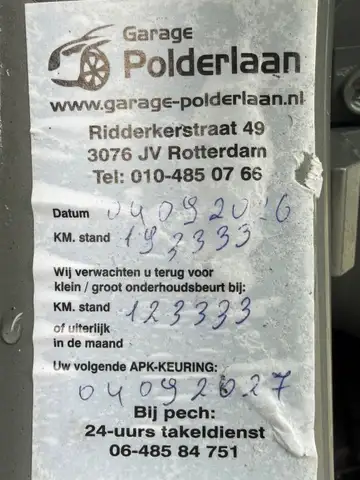 Garage
Polderlaan
www.garage-polderlaan.nl
Ridderkerstraat 49
3076 JV Rotterdam
Tel: 010-485 07 66
Datum 04092026
KM. stand 193333
Wij verwachten u terug voor
klein / groot onderhoudsbeurt bij:
KM. stand 123333
of uiterlijk
in de maand
Uw volgende APK-KEURING:
04092027
Bij pech:
24-uurs takeldienst
06-485 84 751